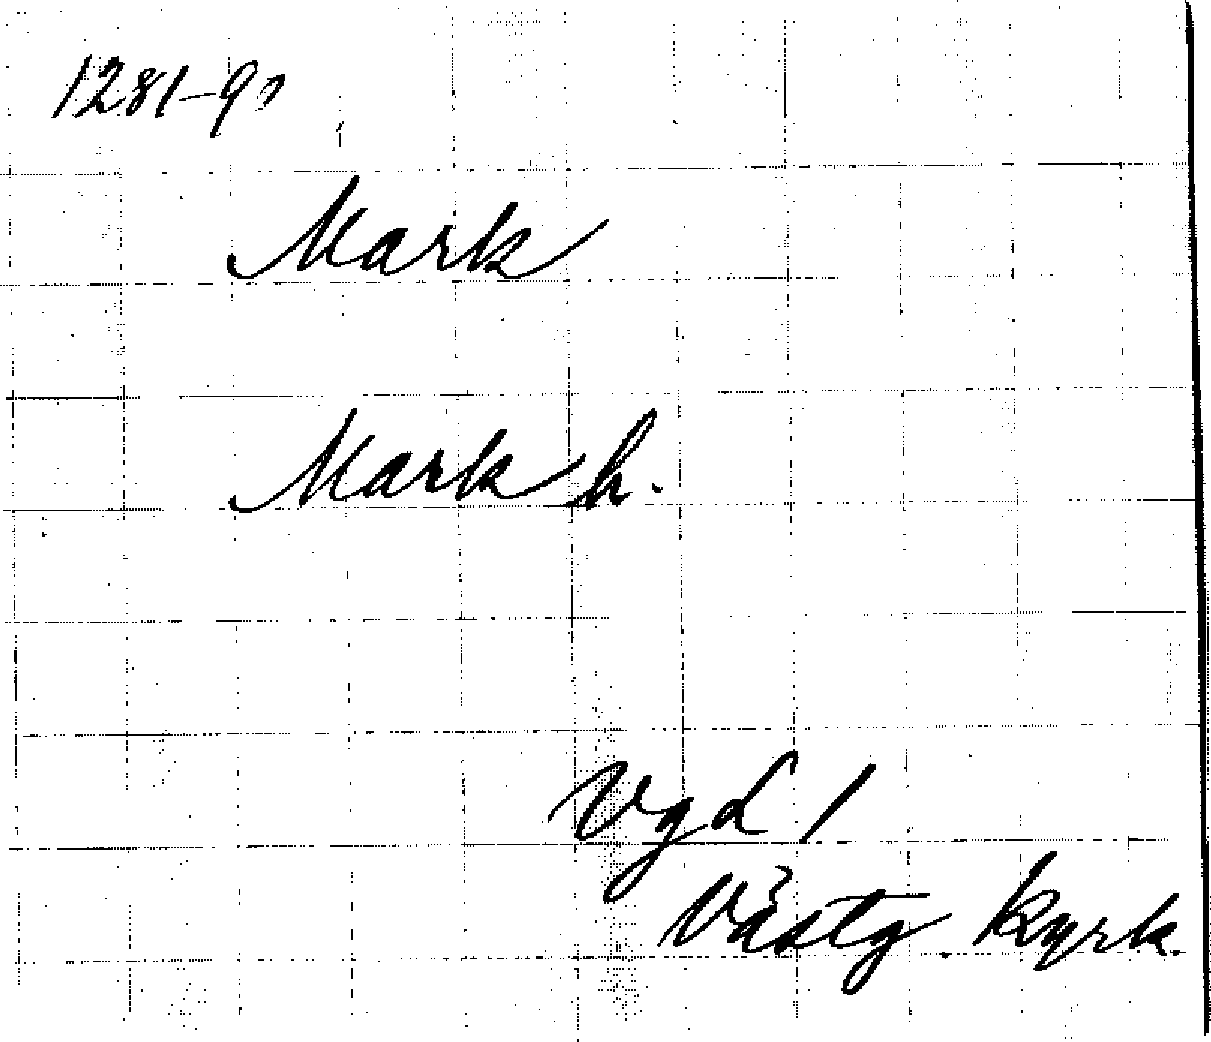 1281-90
Mark
Mark h.
Vgd 1
Västg. kyrk.